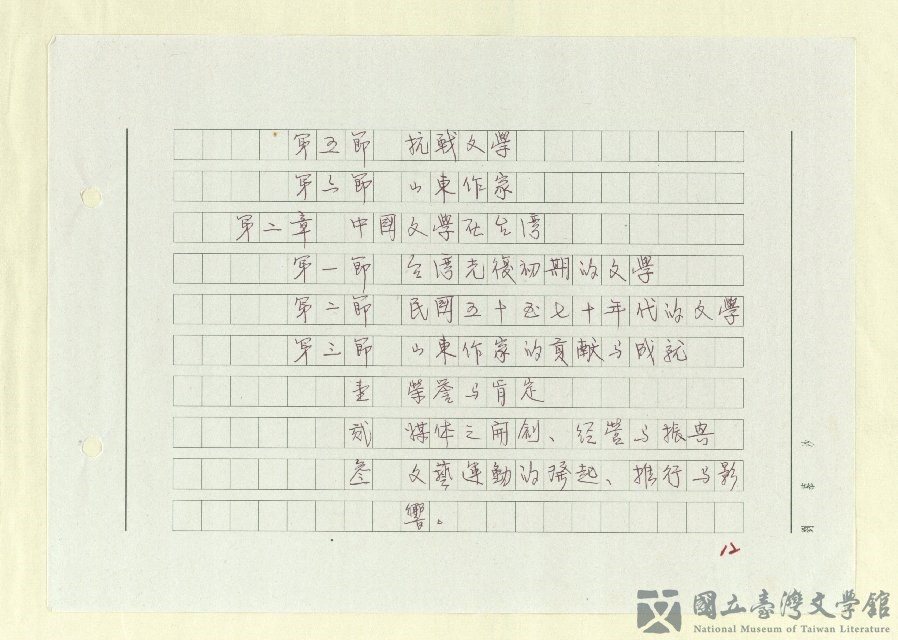 第五節　抗戰文學
第六節　山東作家
第二章　中國文學在台灣
第一節　台灣光復初期的文學
第二節　民國五十至七十年代的文學
第三節　山東作家的貢献与成就
壹　榮譽与肯定
貳　媒体之開創、經營与振興
叁　文藝運動的發起、推行与影
響。
12
國立臺灣文學館
National Museum of Taiwan Literature